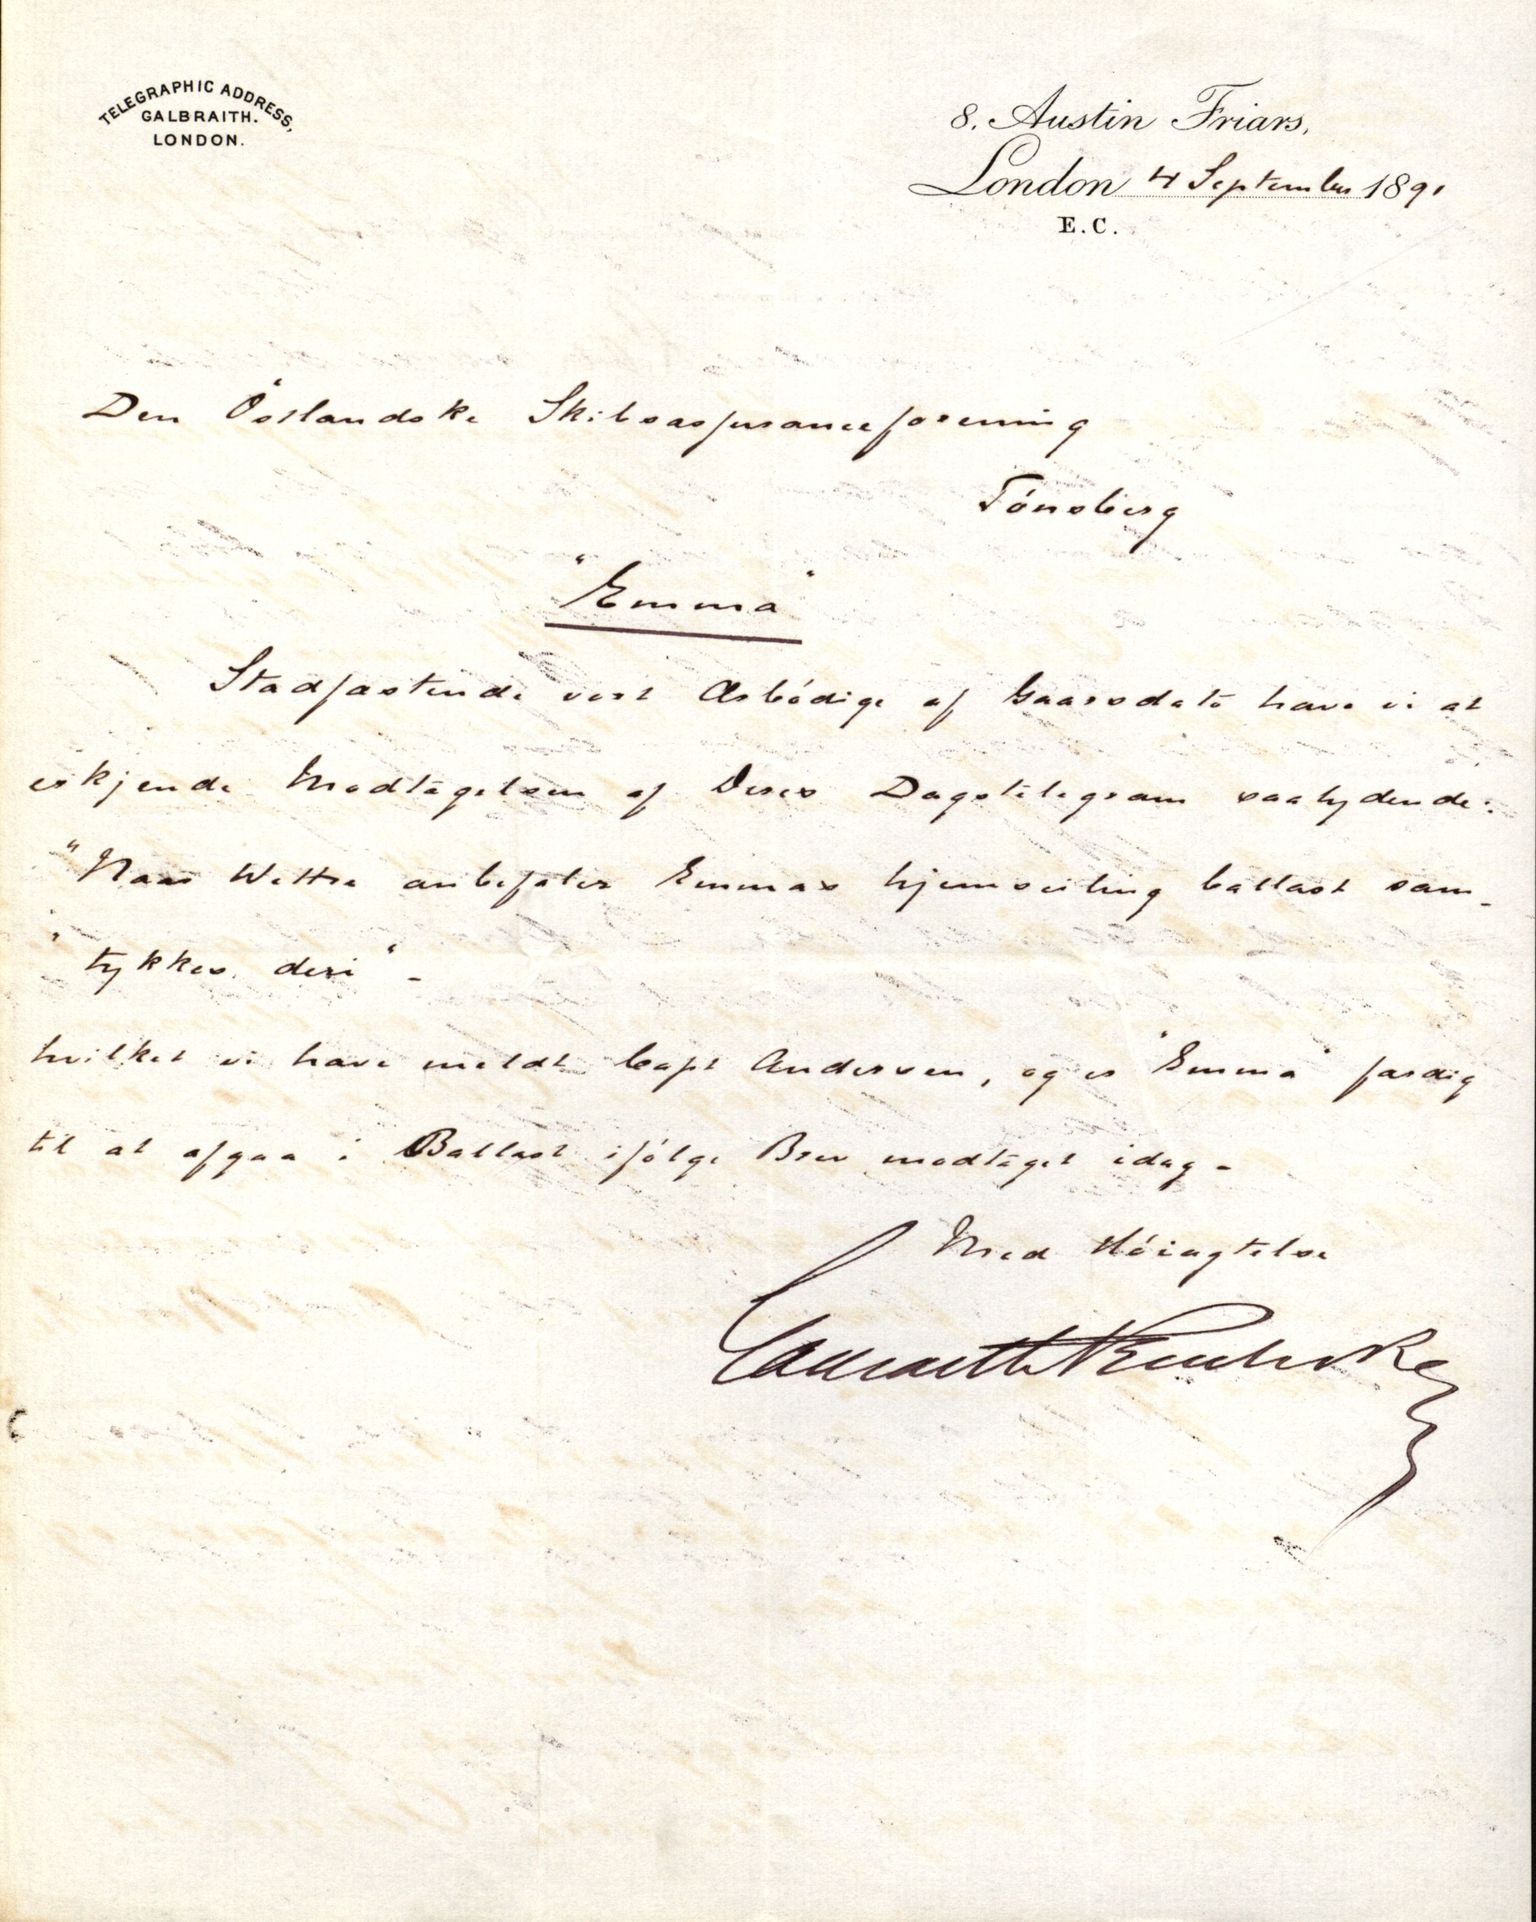 TELEGRAPHIC ADDRESS,
GALBRAITH.
LONDON.
8. Austin Friars,
London 4 September 1891
E.C.
Den Östlandske Skibsassuranceforening
Tönsberg
"Emma"
Stadfæstende vort Ærbödige af Gaarsdato have vi at
erkjende Modtagelsen af Deres Dagstelegram saalydende:
"Naar Wettre anbefaler Emmas hjemseiling ballast sam-
"tykkes deri" -
hvilket vi have meldt Capt Andersen, og er "Emma" færdig
til at afgaa i Ballast ifölge Brev modtaget idag -
Med Höiagtelse
Galbraith Pembroke